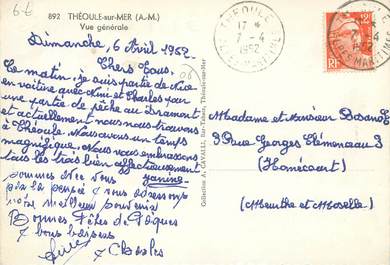 892 THÉOULE-sur-MER (A.-M.)
Vue générale
Dimanche, 6 Avril 1952
Chers Tous,
Ce matin, je suis partie de Nice
en voiture avec Mimi et Charles par
une partie de pêche au Dramont
et actuellement nous nous trouvons
à Théoule. Nous avons un temps
magnifique. Nous vous embrassons
tous les trois bien affectueusement
Janine
Sommes avec vous
par la pensée & vous adressons
notre meilleur souvenir
Bonnes Fêtes de Pâques
& bons baisers
& Charles
Collection A. CAVALLI, Bar-Tabacs, Théoule-sur-Mer
THÉOULE
17 H
7-4
1952
ALPES-MARITIMES
12F
RF
7-4
1952
ALPES-MARITIMES
Madame et Monsieur
3 Rue Georges Clémenceau 3
(Homécourt)
(Meurthe et Moselle)